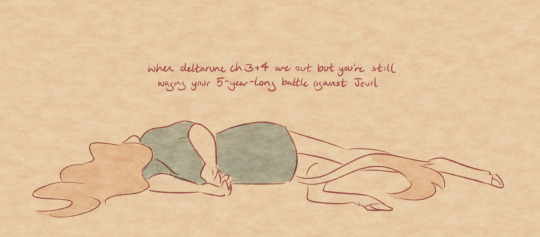 when deltarune ch 3+4 are out but you're still
waging your 5-year-long battle against Jevil